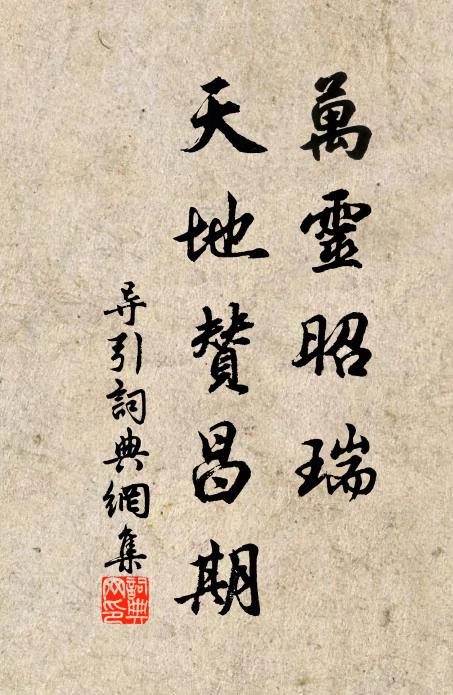 萬靈昭瑞
天地贊昌期
导引詞典網集
詞典网印